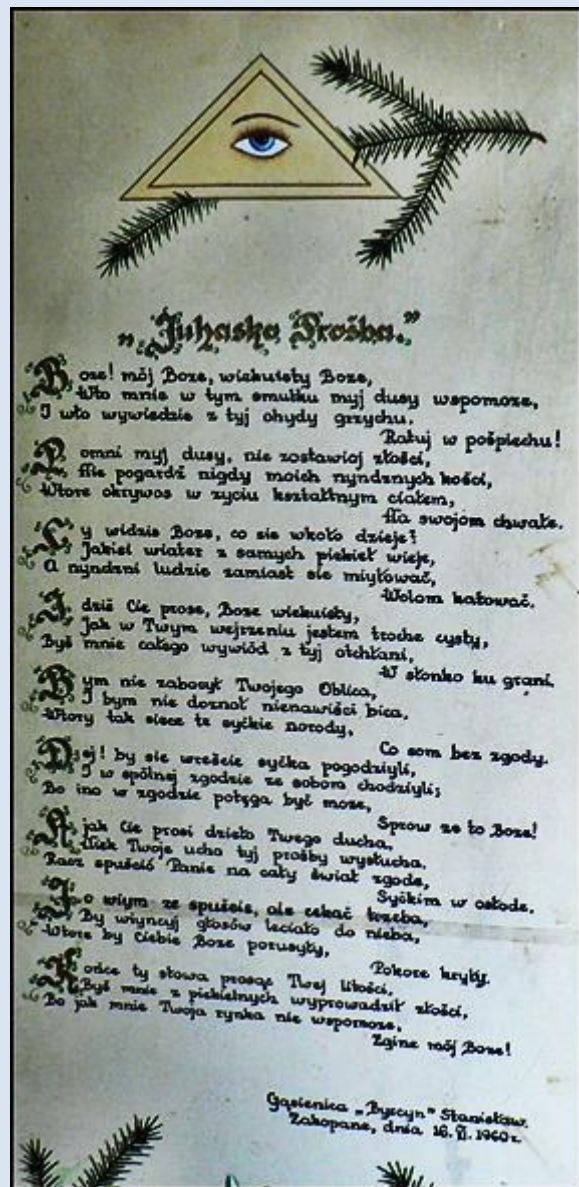 „Juhaska Prośba.”
Boze! mój Boze, wiekuisty Boze,
Wto mnie w tym smutku myj dusy wspomoze,
I wto wywiedzie z tyj ohydy grzychu.
Ratuj w pośpiechu!
Pomni myj dusy, nie zostawioj złości,
Nie pogardź nigdy moich nyndznych kości,
Wtore okrywos w zyciu kształtnym ciałem,
Na swojom chwałe.
Cy widzis Boze, co sie wkoło dzieje?
Jakisi wiater z samych piekieł wieje,
A nyndzni ludzie zamiast sie miyłować,
Wolom katować.
Idziś Cie prose, Boze wiekuisty,
Jak w Twym wejrzeniu jestem troche cysty,
Byś mnie całego wywiód z tyj otchłani,
W słonko ku grani.
Bym nie zabocył Twojego Oblica,
I bym nie doznoł nienawiści bica,
Wtory tak siece te syćkie norody,
Co som bez zgody.
Dyj! by sie wreście syćka pogodziyli,
I w spólnej zgodzie ze sobom chodziyli;
Bo ino w zgodzie potęga być moze,
Sprow ze to Boze!
A jak Cie prosi dzieło Twego ducha,
Niek Twoje ucho tyj prośby wysłucha.
Racz spuścić Panie na cały świat zgode,
Syćkim w osłode.
Jo wiym ze spuścis, ale cekać trzeba,
By wiyncyj głosów leciało do nieba,
Wtore by Ciebie Boze porusyły,
Pokore kryły.
Końce ty słowa prosąc Twej litości,
Byś mnie z piekielnych wyprowadził złości,
Bo jak mnie Twoja rynka nie wspomoze,
Zgine mój Boze!
Gąsienica „Byrcyn” Stanisław.
Zakopane, dnia 16. VI. 1960 r.